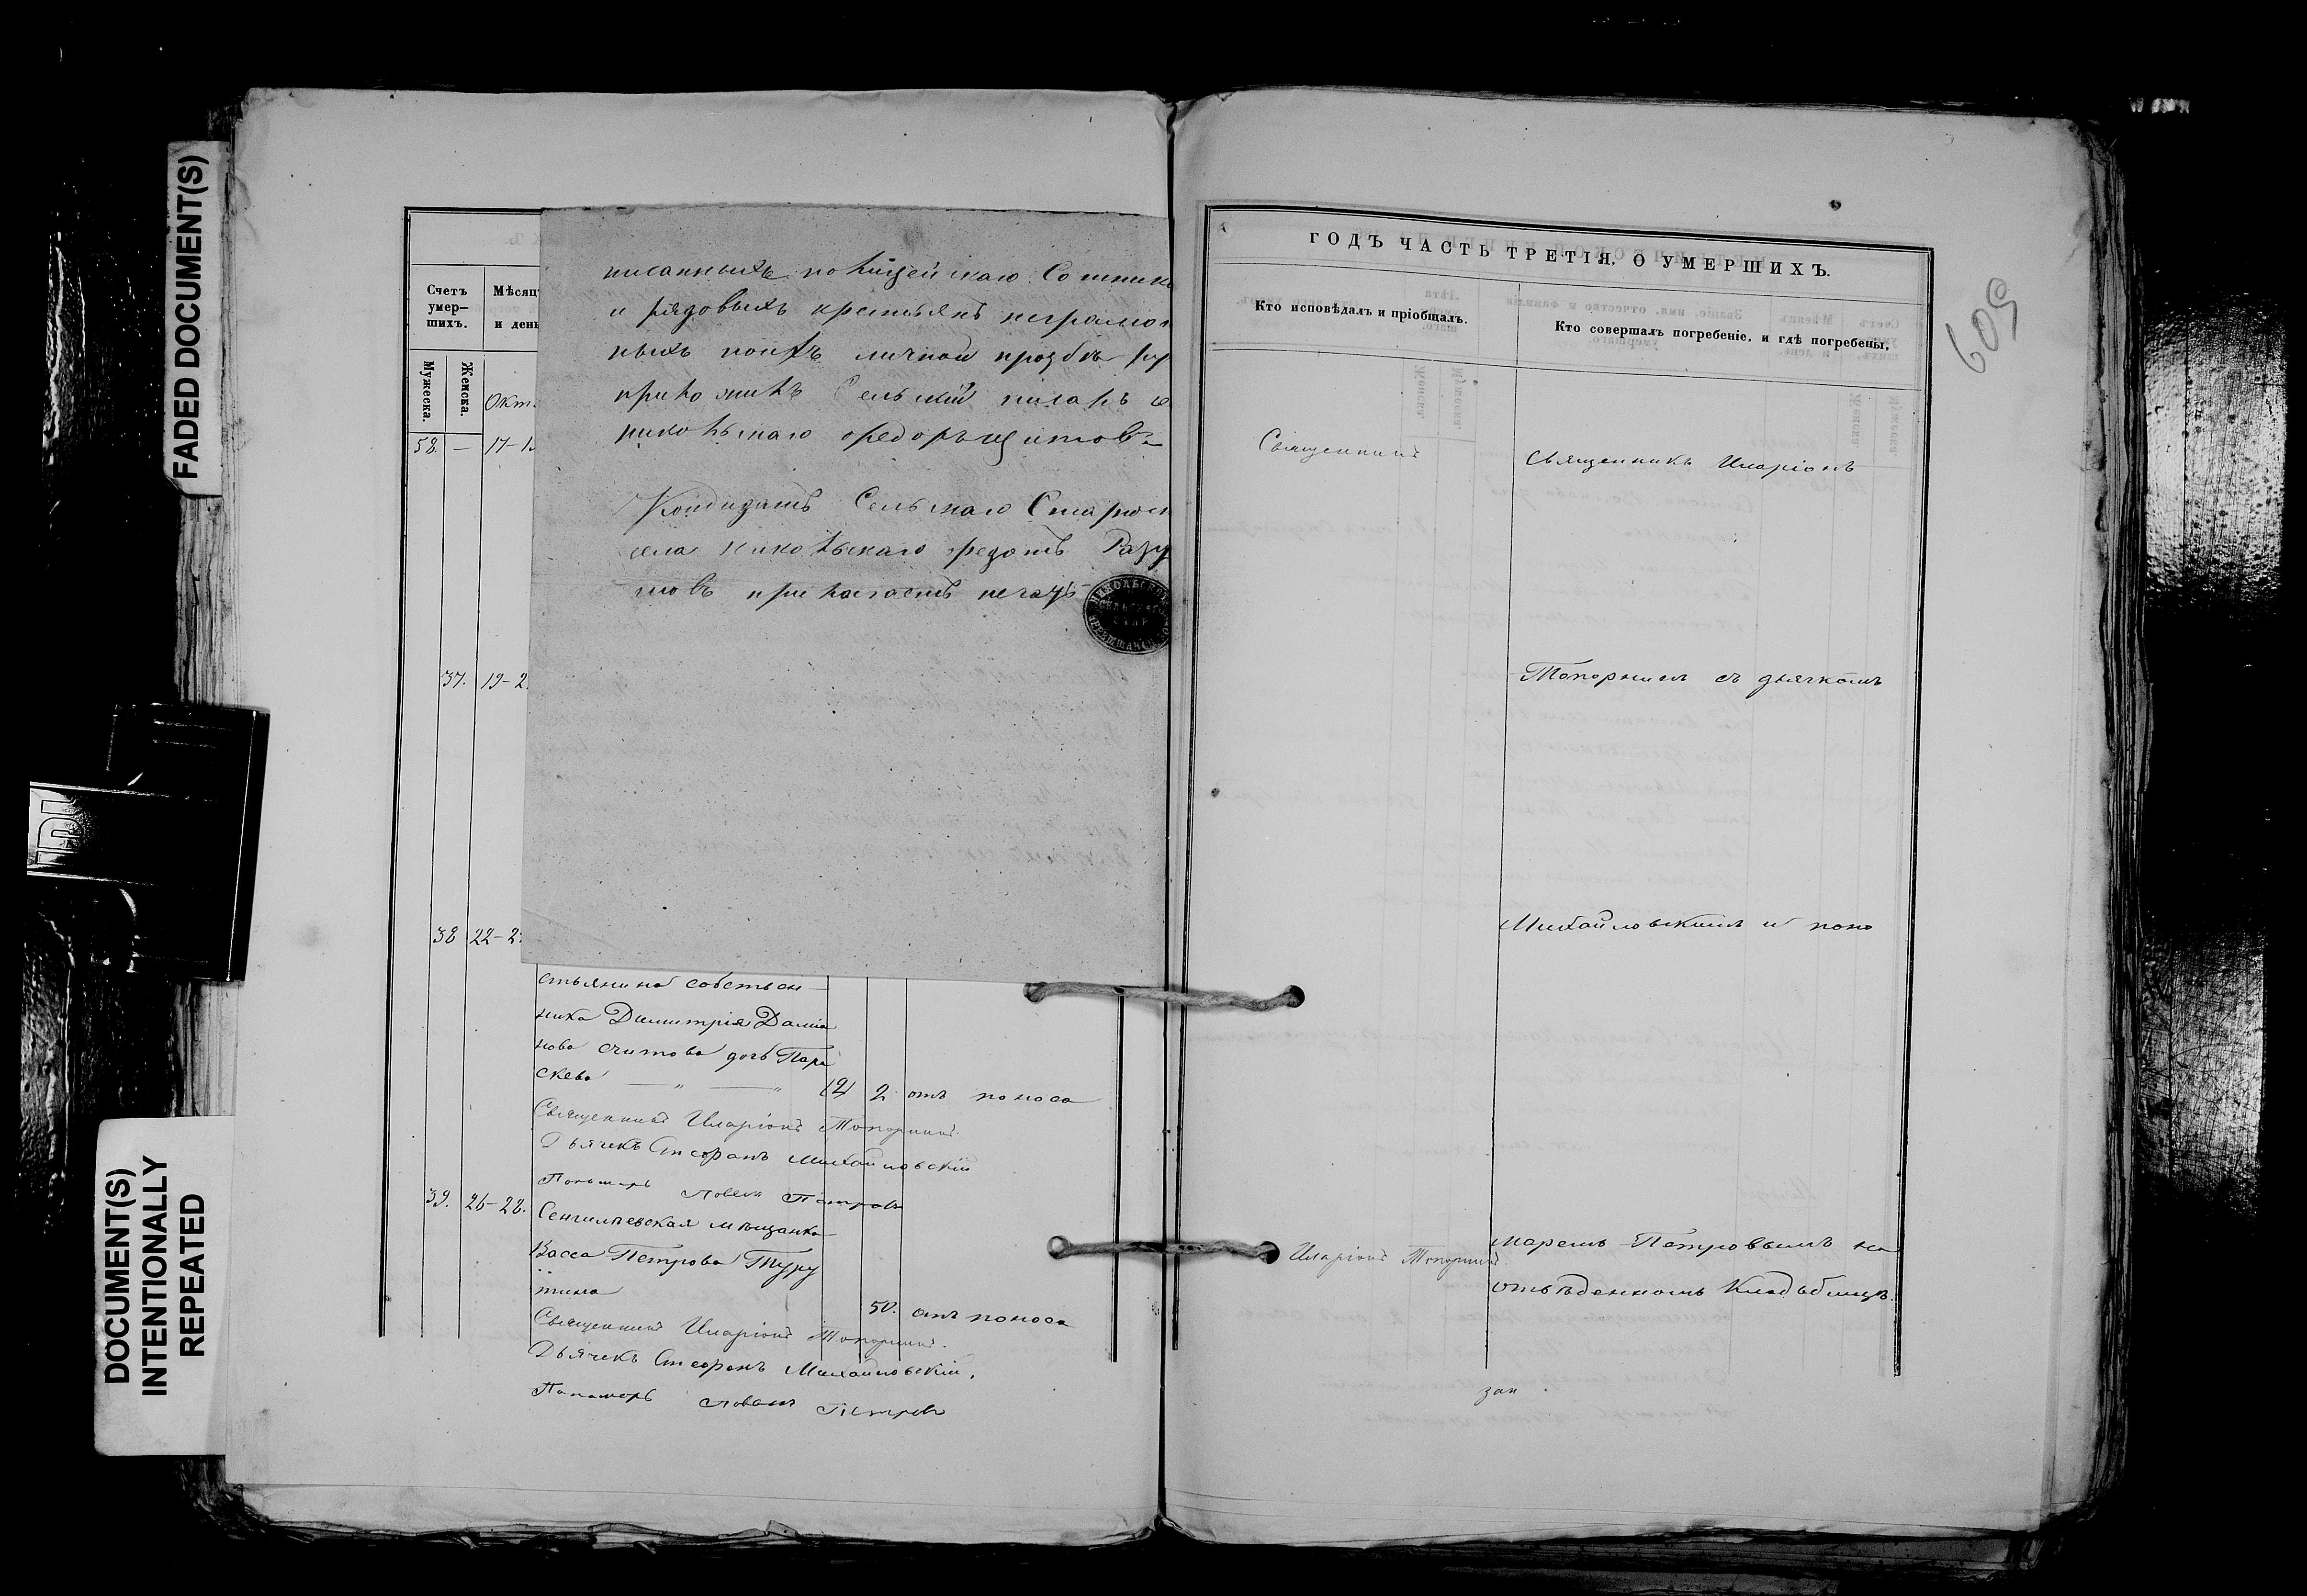 FADED DOCUMENT(S)
DOCUMENT(S)
INTENTIONALLY
REPEATED
Счетъ
умер—
шихъ.
Мужеска.
Женска.
Мѣсяц
и день
Окт.
58. — 17-1
37. 19-2
38 22-2
писанныхъ полицейскаго Сотника
и рядовыхъ крестьянъ неграмот
ныхъ поихъ личной прозбѣ ру
приложилъ Сельскій писарь се
никольскаго Федоръ щитовъ
Кондидатъ Сельскаго Старост
села никольскаго Федотъ Разу
мовъ прилагаетъ печать
стьянина собствен
ника Димитрія Даміа
нова Считова дочь Пара
скева — „ — „ (2) 2 отъ поноса
Священникъ Иларіонъ Топорнинъ.
Дьячекъ Стефанъ Михайловскій
Пономарь Петровъ
39. 26-28. Сенгилѣевская мѣщанка
Васса Петрова Туру
тина 50. отъ поноса
Священникъ Иларіонъ Топорнинъ.
Дьячекъ Стефанъ Михайловскій.
Пономарь Петровъ
ГОДЪ ЧАСТЬ ТРЕТІЯ, О УМЕРШИХЪ.
Кто исповѣдалъ и пріобщалъ.
Кто совершалъ погребеніе, и гдѣ погребены,
609
Священникъ
Священникъ Иларіонъ
Топорнинъ съ дьячкомъ
Михайловскимъ и поно
Иларіонъ Топорнинъ.
маремъ Петровымъ на
отвѣденномъ Кладбищѣ.